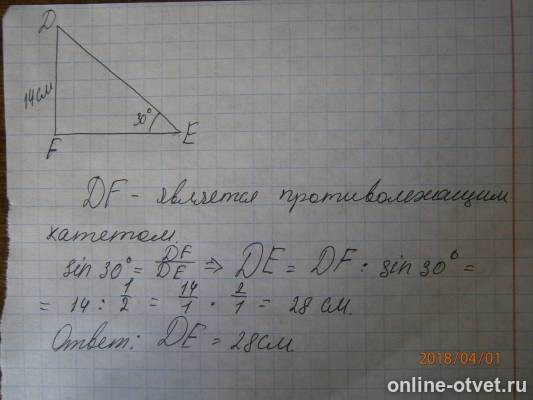 D
14 см
30°
F
E
DF - является противолежащим
катетом.
sin 30° = DF/DE ⇒ DE = DF : sin 30° =
= 14 : 1/2 = 14/1 · 2/1 = 28 см.
Ответ: DE = 28 см
2018/04/01
online-otvet.ru